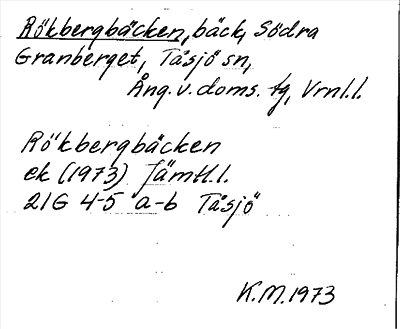 Rökbergbäcken, bäck, Södra
Granberget, Tåsjö sn,
Ång.v.doms. tg, Vrnl.l.
Rökbergbäcken
ek (1973) Jämtl.l.
21G 4-5 a-b Tåsjö
K.M.1973